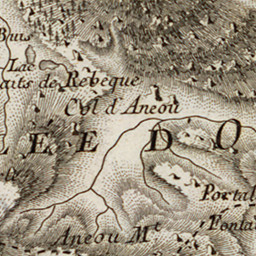 Buis
Lac
aits de Rebeque
Col d'Aneou
LEE DO
Portal
Fontai
Aneou Mt.